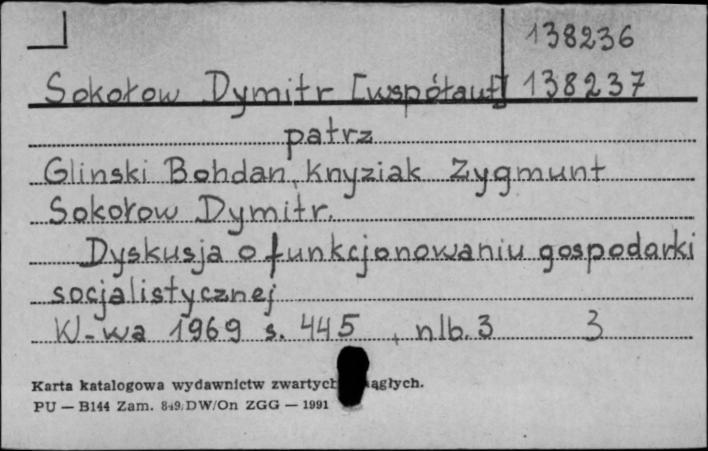 138236
Sokołow Dymitr [współaut] 138237
patrz
Glinski Bohdan, Knyziak Zygmunt
Sokołow Dymitr.
Dyskusja o funkcjonowaniu gospodarki
socjalistycznej
W-wa 1969 s. 445, nlb. 3 3
Karta katalogowa wydawnictw zwartych ągłych.
PU — B144 Zam. 849/DW/On ZGG — 1991